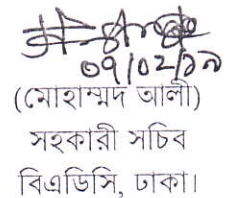 ০৭/০২/১৯
(মোহাম্মদ আলী)
সহকারী সচিব
বিএডিসি, ঢাকা।